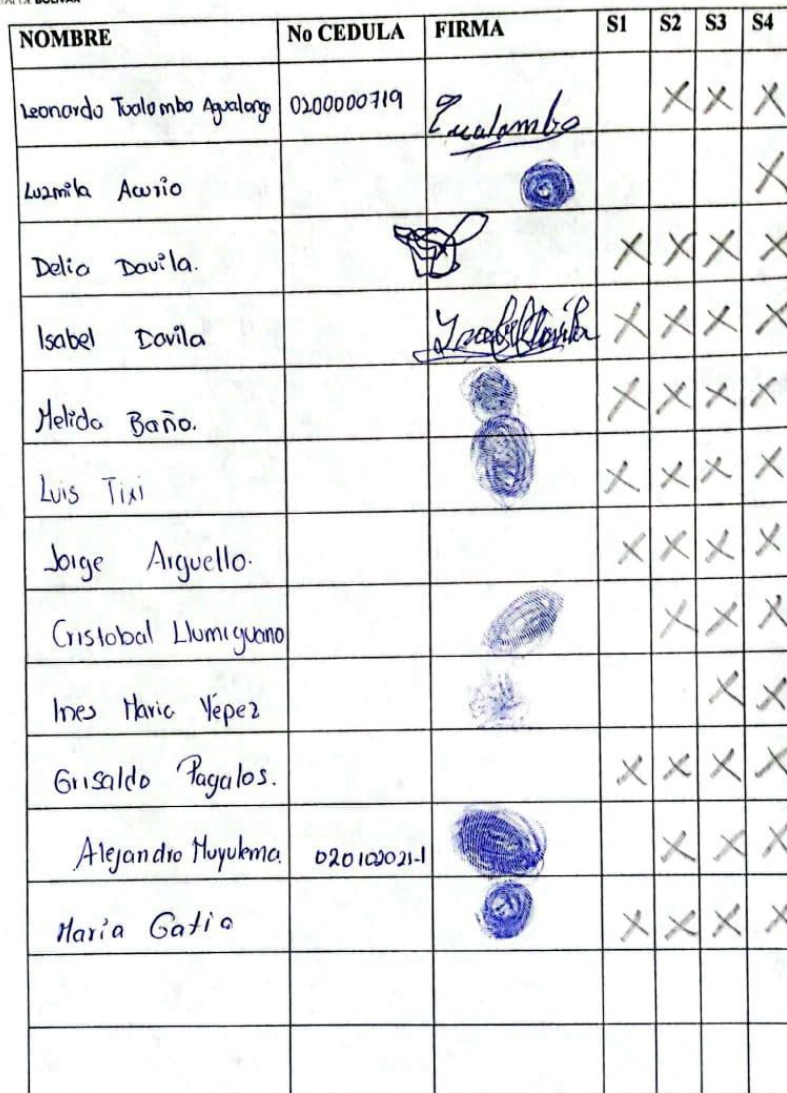 BOLÍVAR
NOMBRE No CEDULA FIRMA S1 S2 S3 S4
Leonardo Tualombo Agualongo 0200000719 Tualombo X X X
Luzmila Acurio X
Delia Davila. X X X X
Isabel Davila Isabel Davila X X X X
Melida Baño. X X X X
Luis Tixi X X X X
Jorge Arguello. X X X X
Cristobal Llumiguano X X X
Ines Maria Yépez X X
Grisaldo Pagalos. X X X X
Alejandro Muyulema. 020102021-1 X X X
Maria Gatia X X X X